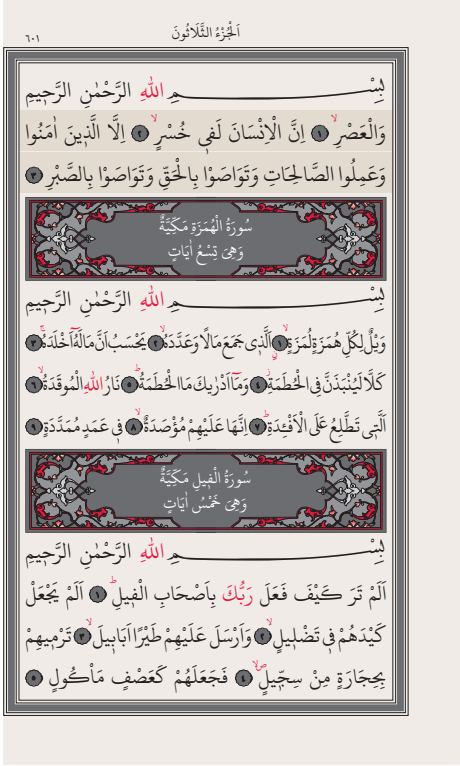 اَلْجُزْءُ الثَّلَاثُونَ
٦٠١
بِسْمِ اللّٰهِ الرَّحْمٰنِ الرَّح۪يمِ
وَالْعَصْرِۙ ﴿١﴾ اِنَّ الْاِنْسَانَ لَف۪ي خُسْرٍۙ ﴿٢﴾ اِلَّا الَّذ۪ينَ اٰمَنُوا
وَعَمِلُوا الصَّالِحَاتِ وَتَوَاصَوْا بِالْحَقِّ وَتَوَاصَوْا بِالصَّبْرِ ﴿٣﴾
سُورَةُ الْهُمَزَةِ مَكِّيَّةٌ
وَهِيَ تِسْعُ اٰيَاتٍ
بِسْمِ اللّٰهِ الرَّحْمٰنِ الرَّح۪يمِ
وَيْلٌ لِكُلِّ هُمَزَةٍ لُمَزَةٍۙ ﴿١﴾ اَلَّذ۪ي جَمَعَ مَالًا وَعَدَّدَهُۙ ﴿٢﴾ يَحْسَبُ اَنَّ مَالَهُٓ اَخْلَدَهُۚ ﴿٣﴾
كَلَّا لَيُنْبَذَنَّ فِي الْحُطَمَةِۘ ﴿٤﴾ وَمَٓا اَدْرٰيكَ مَا الْحُطَمَةُۜ ﴿٥﴾ نَارُ اللّٰهِ الْمُوقَدَةُۙ ﴿٦﴾
اَلَّت۪ي تَطَّلِعُ عَلَى الْاَفْـِٔدَةِۜ ﴿٧﴾ اِنَّهَا عَلَيْهِمْ مُؤْصَدَةٌۙ ﴿٨﴾ ف۪ي عَمَدٍ مُمَدَّدَةٍ ﴿٩﴾
سُورَةُ الْف۪يلِ مَكِّيَّةٌ
وَهِيَ خَمْسُ اٰيَاتٍ
بِسْمِ اللّٰهِ الرَّحْمٰنِ الرَّح۪يمِ
اَلَمْ تَرَ كَيْفَ فَعَلَ رَبُّكَ بِاَصْحَابِ الْف۪يلِۜ ﴿١﴾ اَلَمْ يَجْعَلْ
كَيْدَهُمْ ف۪ي تَضْل۪يلٍۙ ﴿٢﴾ وَاَرْسَلَ عَلَيْهِمْ طَيْرًا اَبَاب۪يلَۙ ﴿٣﴾ تَرْم۪يهِمْ
بِحِجَارَةٍ مِنْ سِجّ۪يلٍۙۖ ﴿٤﴾ فَجَعَلَهُمْ كَعَصْفٍ مَأْكُولٍ ﴿٥﴾